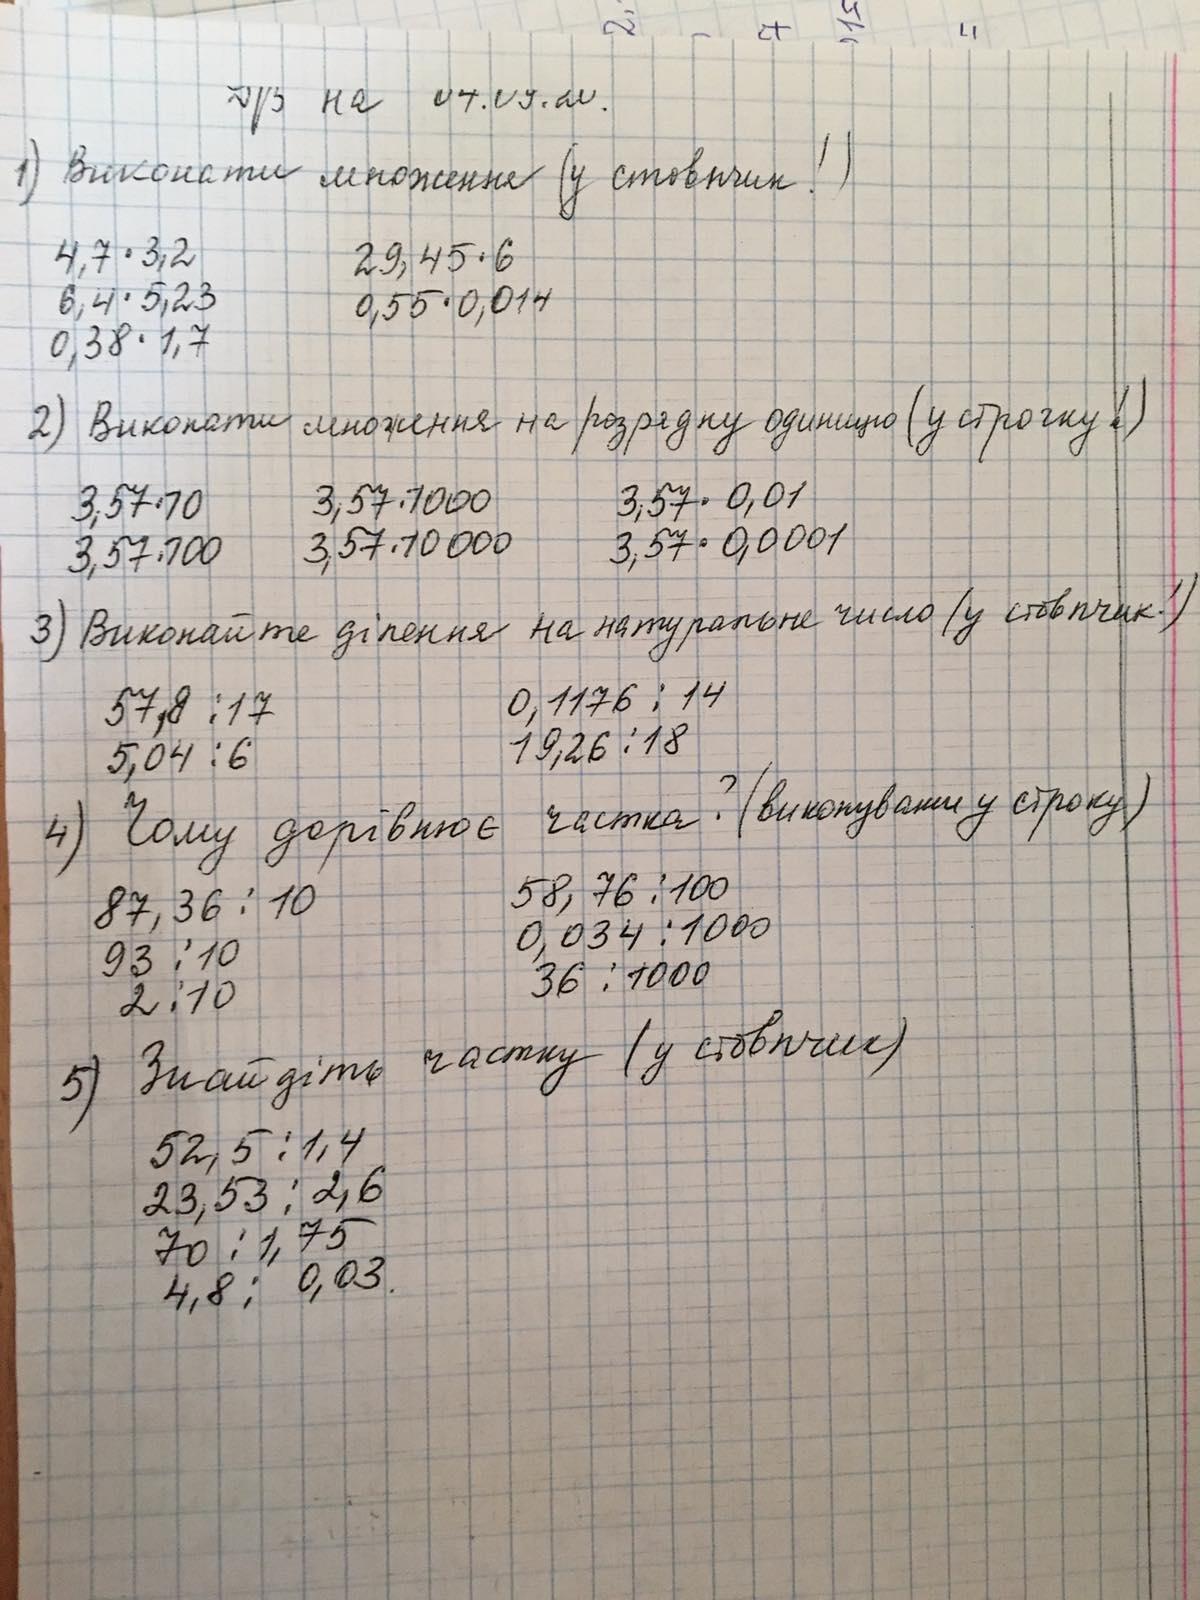 Д/З на 04.09.20.
1) Виконати множення (у стовпчик!)
4,7·3,2 29,45·6
6,4·5,23 0,55·0,014
0,38·1,7
2) Виконати множення на розрядну одиницю (у строчку!)
3,57·10 3,57·1000 3,57·0,01
3,57·100 3,57·10000 3,57·0,0001
3) Виконайте ділення на натуральне число (у стовпчик!)
57,8:17 0,1176:14
5,04:6 19,26:18
4) Чому дорівнює частка? (виконувати у строку)
87,36:10 58,76:100
93:10 0,034:1000
2:10 36:1000
5) Знайдіть частку (у стовпчик)
52,5:1,4
23,53:2,6
70:1,75
4,8:0,03.